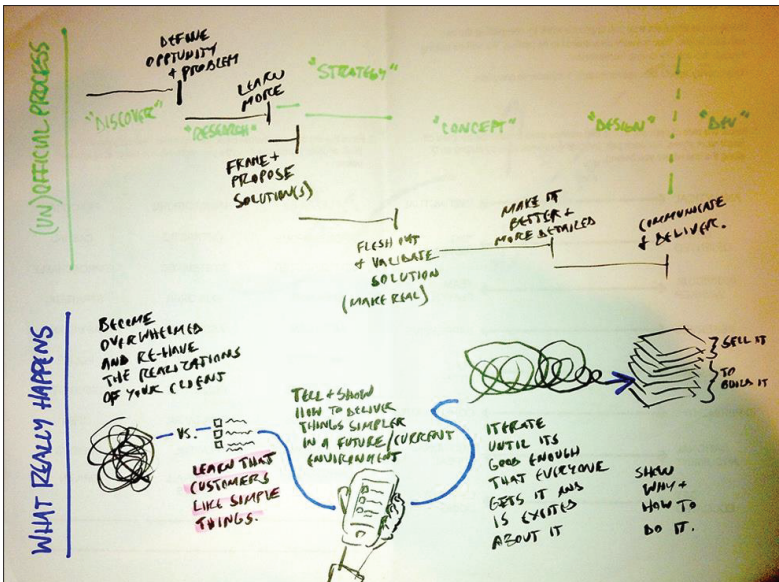 (UN)OFFICIAL PROCESS
DEFINE
OPPTUNITY
+ PROBLEM
"DISCOVER"
LEARN
MORE
"RESEARCH"
"STRATEGY"
FRAME +
PROPOSE
SOLUTION(S)
"CONCEPT"
"DESIGN"
"DEV"
FLESH OUT
+ VALIDATE
SOLUTION
(MAKE REAL)
MAKE IT
BETTER +
MORE DETAILED
COMMUNICATE
+ DELIVER.
WHAT REALLY HAPPENS
BECOME
OVERWHELMED
AND RE-HAVE
THE REALIZATIONS
OF YOUR CLIENT
VS.
LEARN THAT
CUSTOMERS
LIKE SIMPLE
THINGS.
TELL + SHOW
HOW TO DELIVER
THINGS SIMPLER
IN A FUTURE/CURRENT
ENVIRONMENT
ITERATE
UNTIL ITS
GOOD ENOUGH
THAT EVERYONE
GETS IT AND
IS EXITED
ABOUT IT
SELL IT
TO
BUILD IT
SHOW
WHY +
HOW TO
DO IT.